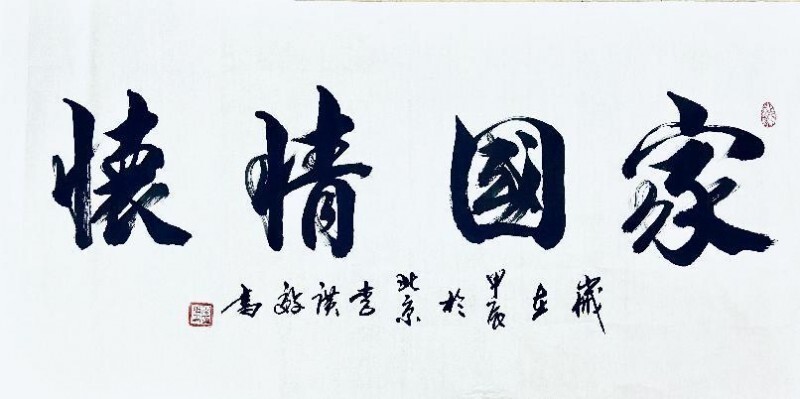 家國情懷
歲在甲辰於北京李謀毅書